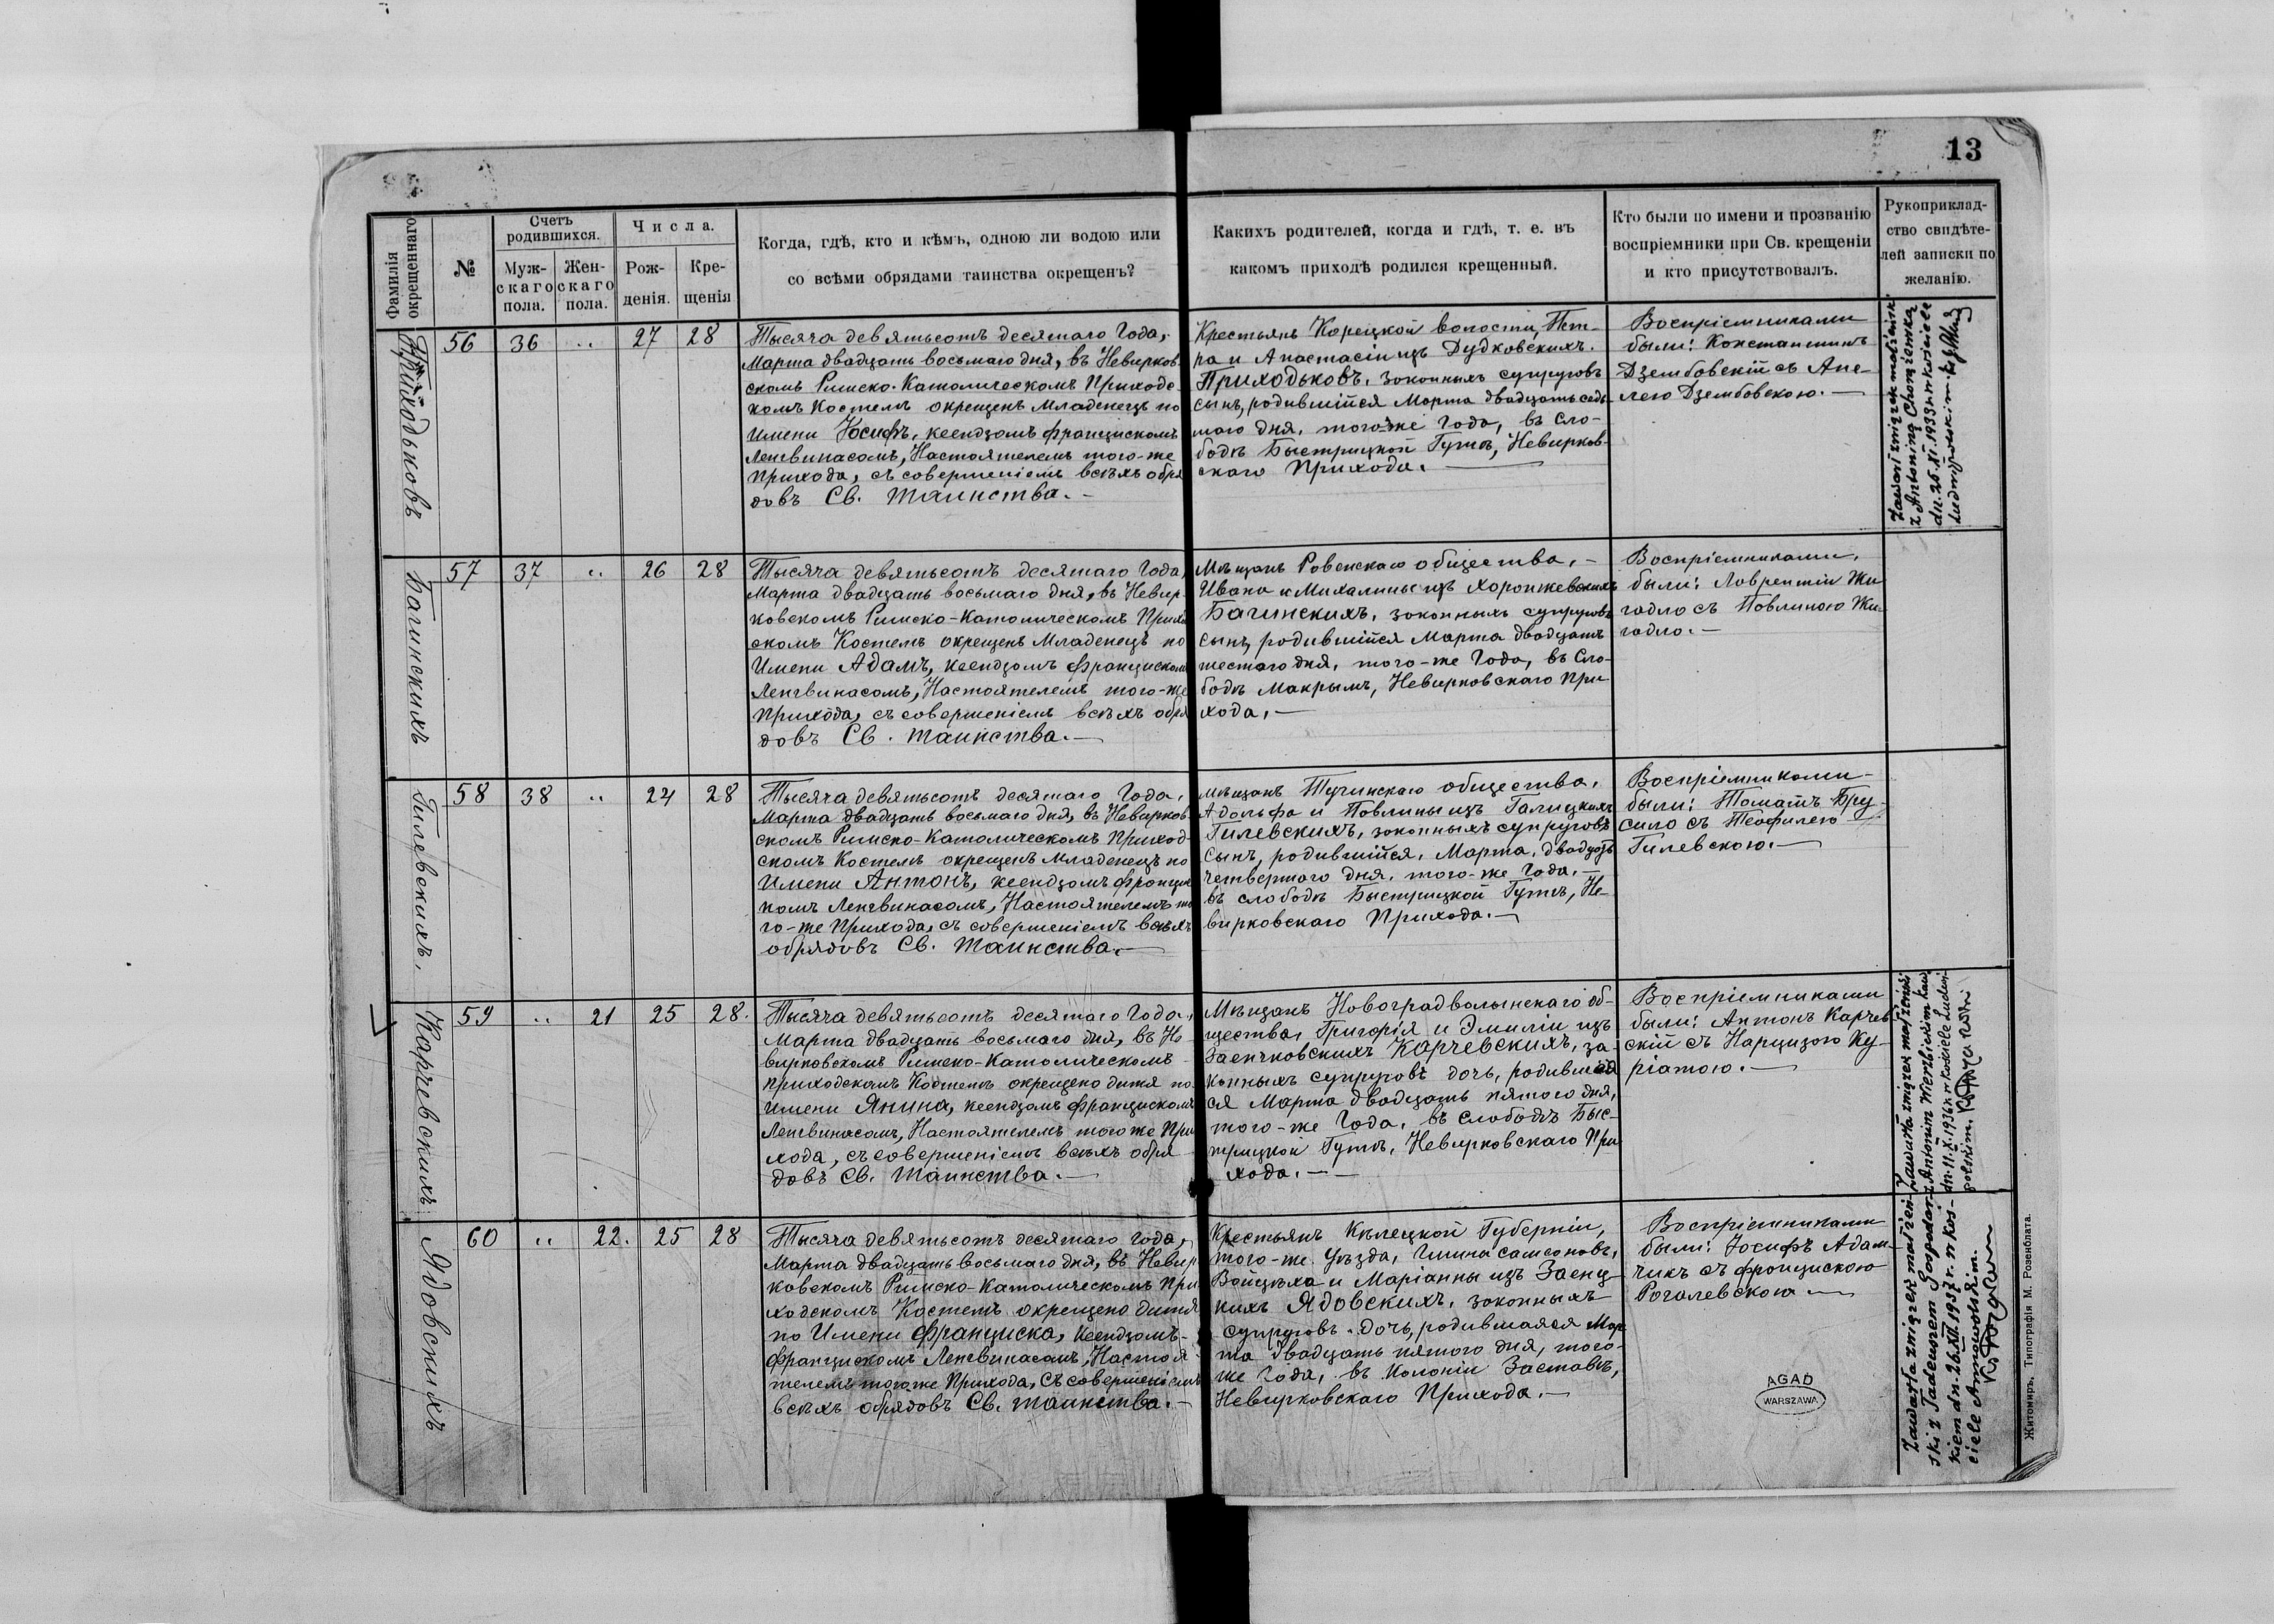 13
Фамилія окрещеннаго
№
Счетъ родившихся.
Муж-
скаго
пола.
Жен-
скаго
пола.
Числа.
Рож-
денія.
Кре-
щенія
Когда, гдѣ, кто и кѣмъ, одною ли водою или
со всѣми обрядами таинства окрещенъ?
Какихъ родителей, когда и гдѣ, т. е. въ
какомъ приходѣ родился крещенный.
Кто были по имени и прозванію
воспріемники при Св. крещеніи
и кто присутствовалъ.
Рукоприклад-
ство свидѣте-
лей записки по
желанію.
Приходьковъ
56 36 .. 27 28
Тысяча девятьсотъ десятаго Года,
Марта двадцать восьмаго дня, въ Невирков-
скомъ Римско-Католическомъ Приходс-
комъ Костелѣ окрещенъ Младенецъ по
Имени Іосифъ, ксендзомъ Францискомъ
Ленгвинасомъ, Настоятелемъ того-же
Прихода, съ совершеніемъ всѣхъ обря
довъ Св. Таинства.-
Крестьянъ Корецкой волости, Пет-
ра и Анастасіи изъ Дудковскихъ.
Приходьковъ, законныхъ супруговъ
сынъ, родившійся Марта двадцать седь-
маго дня, того же Года, въ Сло-
бодѣ Быстрицкой Гутѣ, Невирков-
скаго Прихода.
Воспріемниками
были: Константинъ
Дзембовскій съ Апе-
лею Дзембовскою.-
Zawarł związek małżeńsk.
z Antoniną Chorążenką
dn. 25.XI.1933 r. w kościele
Ludwipolskim.
Багинскихъ
57 37 .. 26 28
Тысяча девятьсотъ десятаго Года,
Марта двадцать восьмаго дня, въ Невир-
ковскомъ Римско-Католическомъ Прихо
скомъ Костелѣ окрещенъ Младенецъ по
Имени Адамъ, ксендзомъ Францискомъ
Ленгвинасомъ, Настоятелемъ того-же
Прихода, съ совершеніемъ всѣхъ обря
довъ Св. Таинства.-
Мѣщанъ Ровенскаго общества,-
Ивана и Михалины изъ Хоронжевскихъ
Багинскихъ, законныхъ супруговъ
сынъ, родившійся Марта двадцать
шестаго дня, того-же Года, въ Сло-
бодѣ Макрымъ, Невирковскаго При
хода.-
Воспріемниками,
были: Лаврентій Жи
гадло съ Павлиною Жи-
гадло.-
Гилевскихъ,
58 38 .. 24 28
Тысяча девятьсотъ десятаго Года,
Марта двадцать восьмаго дня, въ Невирков-
скомъ Римско-Католическомъ Приход-
скомъ Костелѣ окрещенъ Младенецъ по
Имени Антонъ, ксендзомъ Францис
комъ Ленгвинасомъ, Настоятелемъ то
го-же Прихода, съ совершеніемъ всѣхъ
обрядовъ Св. Таинства.-
Мѣщанъ Тучинскаго общества,
Адольфа и Павлины изъ Галицкихъ
Гилевскихъ, законныхъ супруговъ
Сынъ, родившійся, Марта, двадцать
четвертаго дня, того-же Года,-
въ слободѣ Быстрицкой Гутѣ, Не-
вирковскаго Прихода.-
Воспріемниками-
были: Томашъ Бру-
сило съ Теофилею
Гилевскою.-
Карчевскихъ
59 .. 21 25 28.
Тысяча девятьсотъ десятаго Года,
Марта двадцать восьмаго дня, въ Не-
вирковскомъ Римско-Католическомъ-
Приходскомъ Костелѣ окрещено дитя по
имени Янина, ксендзомъ Францискомъ
Ленгвинасомъ, Настоятелемъ того же При
хода, съ совершеніемъ всѣхъ обря-
довъ Св. Таинства.-
Мѣщанъ Новоградволынскаго об-
щества, Григорія и Эмиліи изъ
Заенчковскихъ Карчевскихъ, за-
конныхъ супруговъ дочь, родившая
ся Марта двадцать пятаго дня,
того-же Года, въ Слободѣ Быс-
трицкой Гутѣ, Невирковскаго При
хода.-
Воспріемниками
были: Антонъ Карчев
скій съ Нарцизою Ку-
ріатою.-
Zawarła związek małżeński
z Antonim Wierzbickim
w kościele Ludwi-
polskim.
Ядовскихъ
60 .. 22. 25 28
Тысяча девятьсотъ десятаго Года,
Марта двадцать восьмаго дня, въ Невир
ковскомъ Римско-Католическомъ При
ходскомъ Костелѣ окрещено дитя
по Имени Франциска, ксендзомъ-
Францискомъ Ленгвинасомъ, Настоя-
телемъ того же Прихода, съ совершеніемъ
всѣхъ обрядовъ Св. Таинства.-
Крестьянъ Кѣлецкой Губерніи,
того-же Уѣзда, Гмина Самсоновъ,
Войцѣха и Маріанны изъ Заенц-
кихъ Ядовскихъ, законныхъ-
супруговъ. дочь, родившаяся Мар
та двадцать пятаго дня, того-
же Года, въ Колоніи Заставѣ,
Невирковскаго Прихода.-
Воспріемниками
были: Іосифъ Адам-
чикъ съ Францискою
Рогалевскою
Zawarła związek małżeń-
ski z Tadeuszem Gospodar-
kiem dn. 26.XII.1937 r. w koś-
ciele
AGAD
WARSZAWA
Житомиръ, Типографія М. Розенблата.